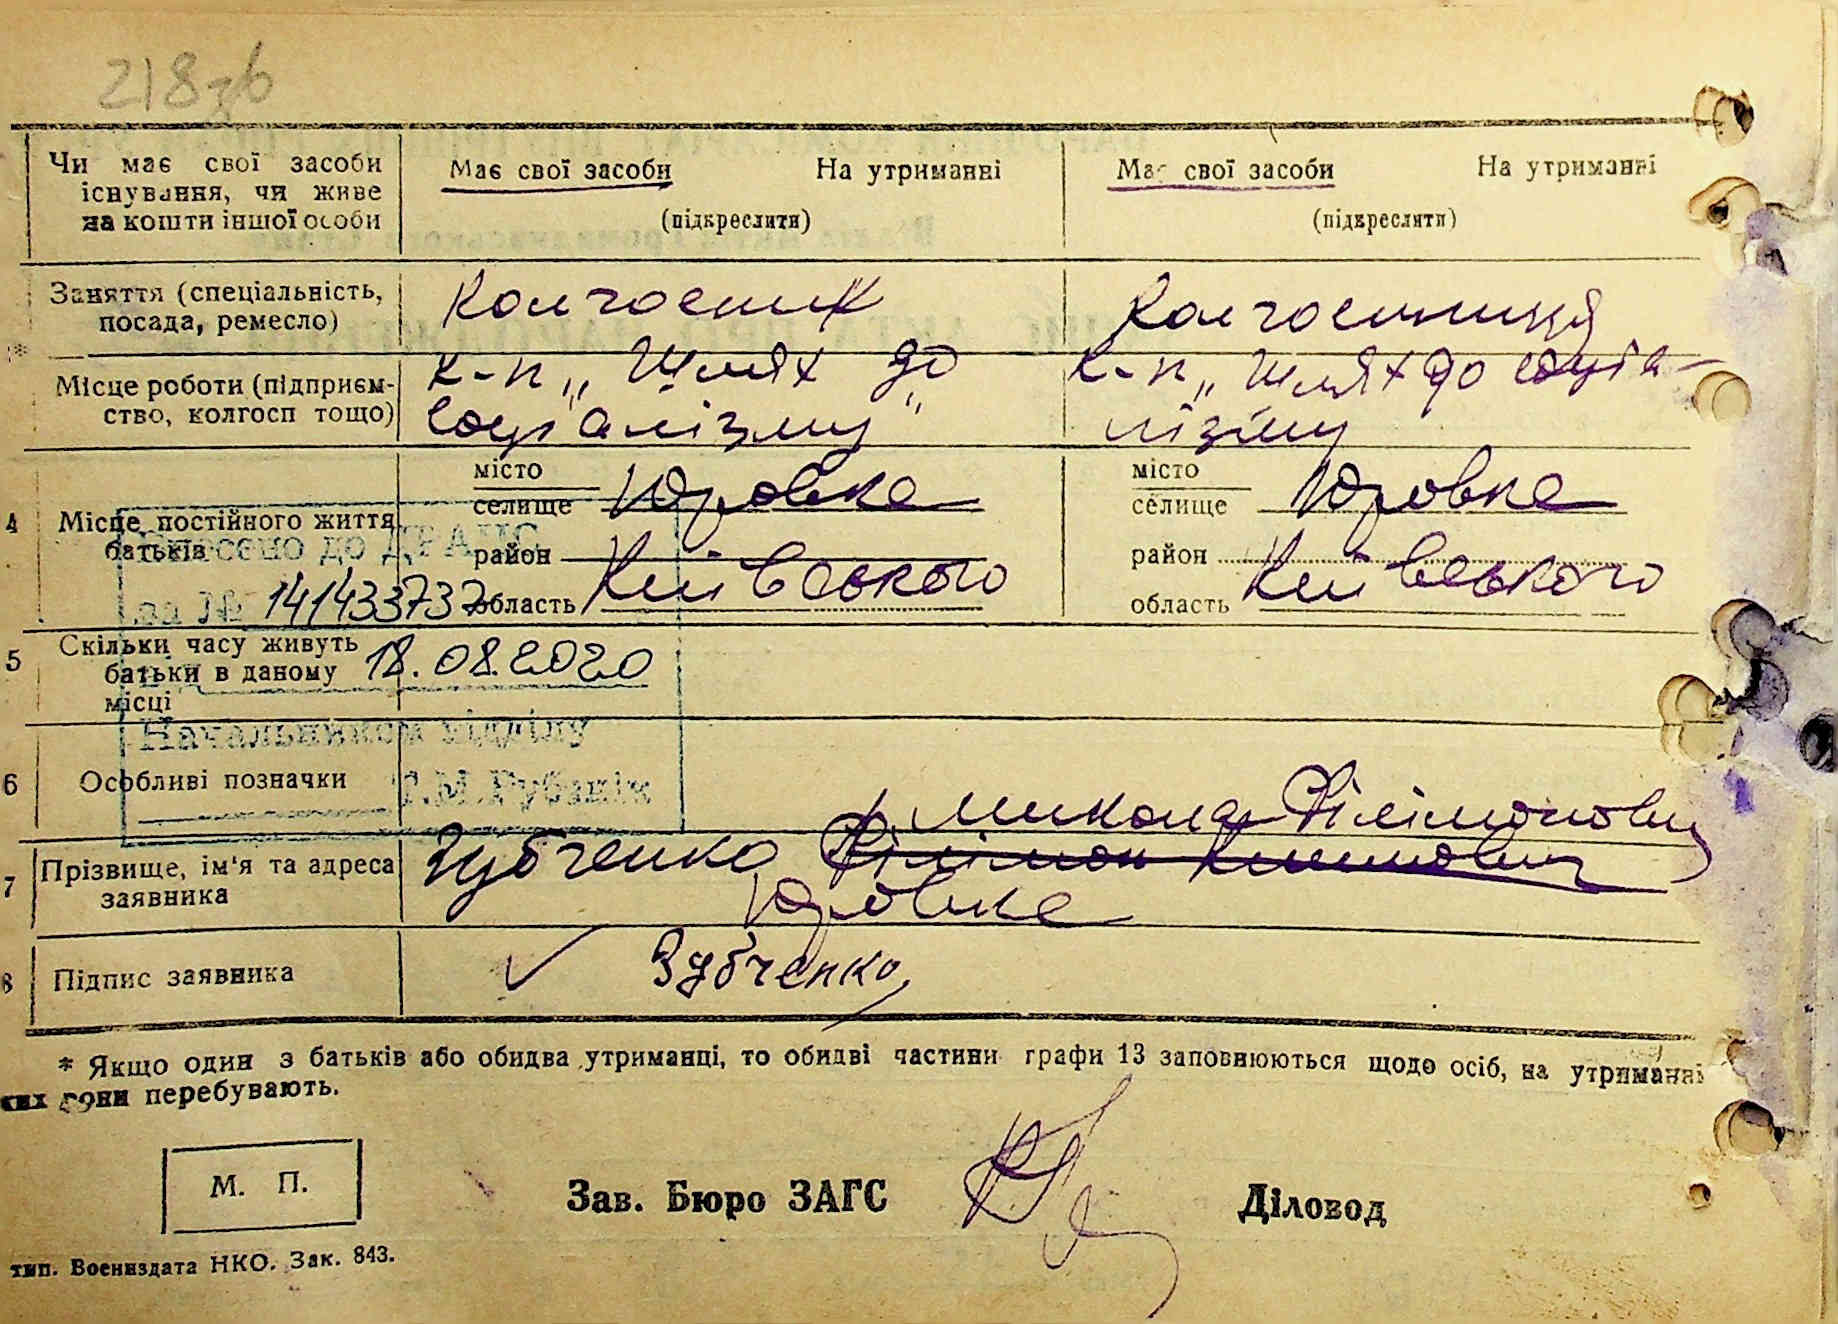 218зв
Чи має свої засоби існування, чи живе на кошти іншої особи
Має свої засоби На утриманні
(підкреслити)
Має свої засоби На утриманні
(підкреслити)
Заняття (спеціальність, посада, ремесло)
Колгосник
Колгосниця
Місце роботи (підприєм-
ство, колгосп тощо)
к-п „Шлях до
соціалізму"
к-п „Шлях до соціа-
лізму
4 Місце постійного життя
батьків
місто
селище Юровка
район
область Київського
місто
селище Юровка
район
область Київського
Внесено до ДРАЦС
за № 14143373
18.08.2020
Начальником відділу
5 Скільки часу живуть
батьки в даному
місці
6 Особливі позначки
7 Прізвище, ім'я та адреса
заявника
Микола Філімонович
Зубченко Філімон
Юровка
8 Підпис заявника
Зубченко
* Якщо один з батьків або обидва утриманці, то обидві частини графи 13 заповнюються щодо осіб, на утриманні
ких вони перебувають.
М. П.
Зав. Бюро ЗАГС
Діловод
тип. Воениздата НКО. Зак. 843.